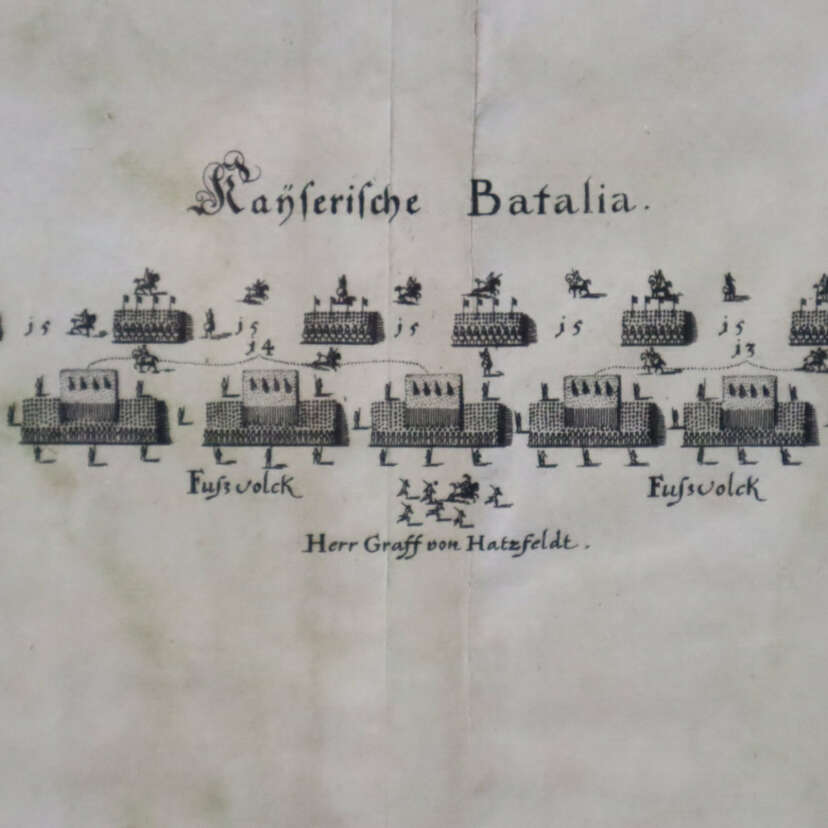 Kaÿserische Batalia.
j5 j5 j5 j5 j5
j4 j3
Fußvolck Fußvolck
Herr Graff von Hatzfeldt.